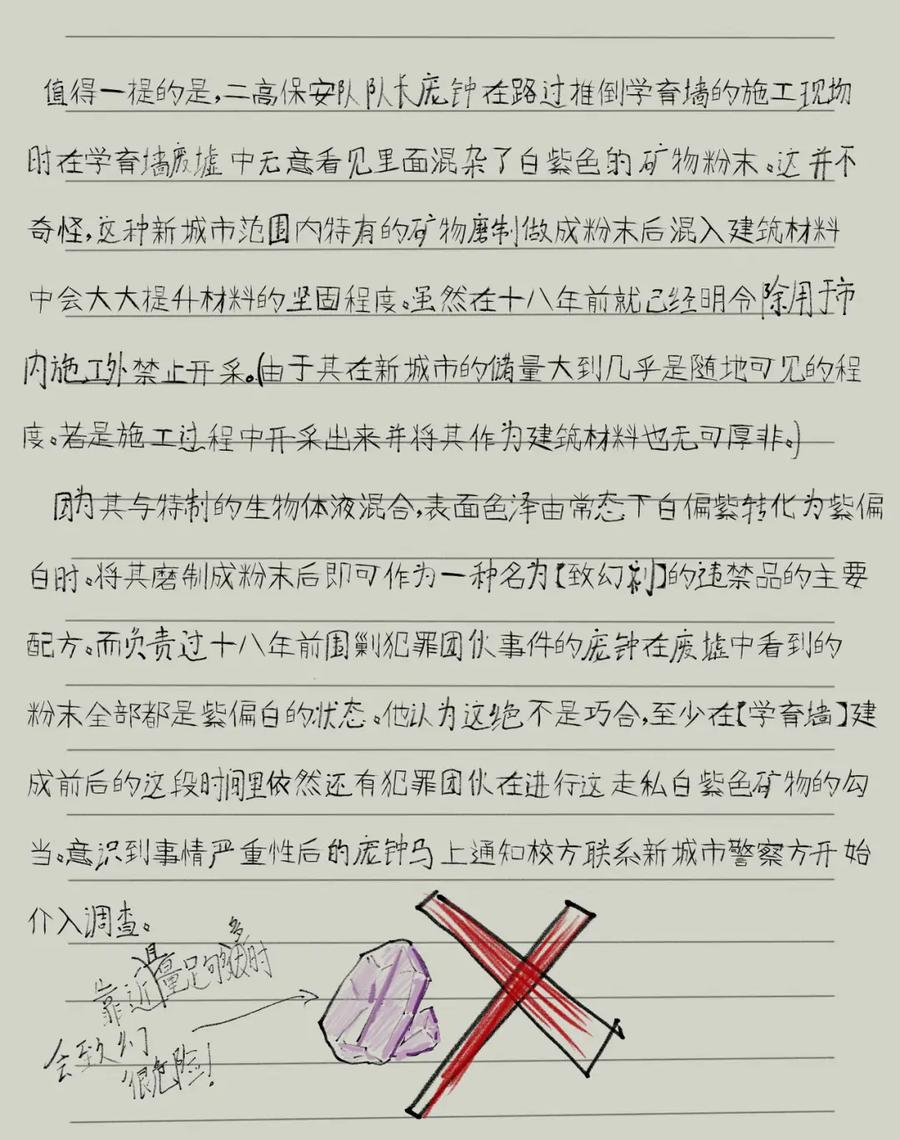 值得一提的是,二高保安队队长庞钟在路过推倒学育墙的施工现场
时在学育墙废墟中无意看见里面混杂了白紫色的矿物粉末。这并不
奇怪,这种新城市范围内特有的矿物磨制做成粉末后混入建筑材料
中会大大提升材料的坚固程度。虽然在十八年前就已经明令除用于市
内施工外禁止开采。(由于其在新城市的储量大到几乎是随地可见的程
度。若是施工过程中开采出来并将其作为建筑材料也无可厚非。)
因为其与特制的生物体液混合,表面色泽由常态下白偏紫转化为紫偏
白时。将其磨制成粉末后即可作为一种名为【致幻剂】的违禁品的主要
配方。而负责过十八年前围剿犯罪团伙事件的庞钟在废墟中看到的
粉末全部都是紫偏白的状态。他认为这绝不是巧合,至少在【学育墙】建
成前后的这段时间里依然还有犯罪团伙在进行这走私白紫色矿物的勾
当。意识到事情严重性后的庞钟马上通知校方联系新城市警察方开始
介入调查。
靠近量足够多时
会致幻
很危险!